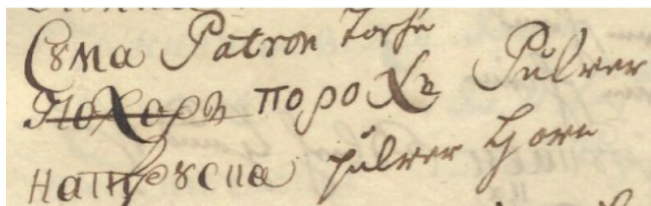 Сѹма Patron Torße
порохъ Pulver
натрѹска pulver Horn